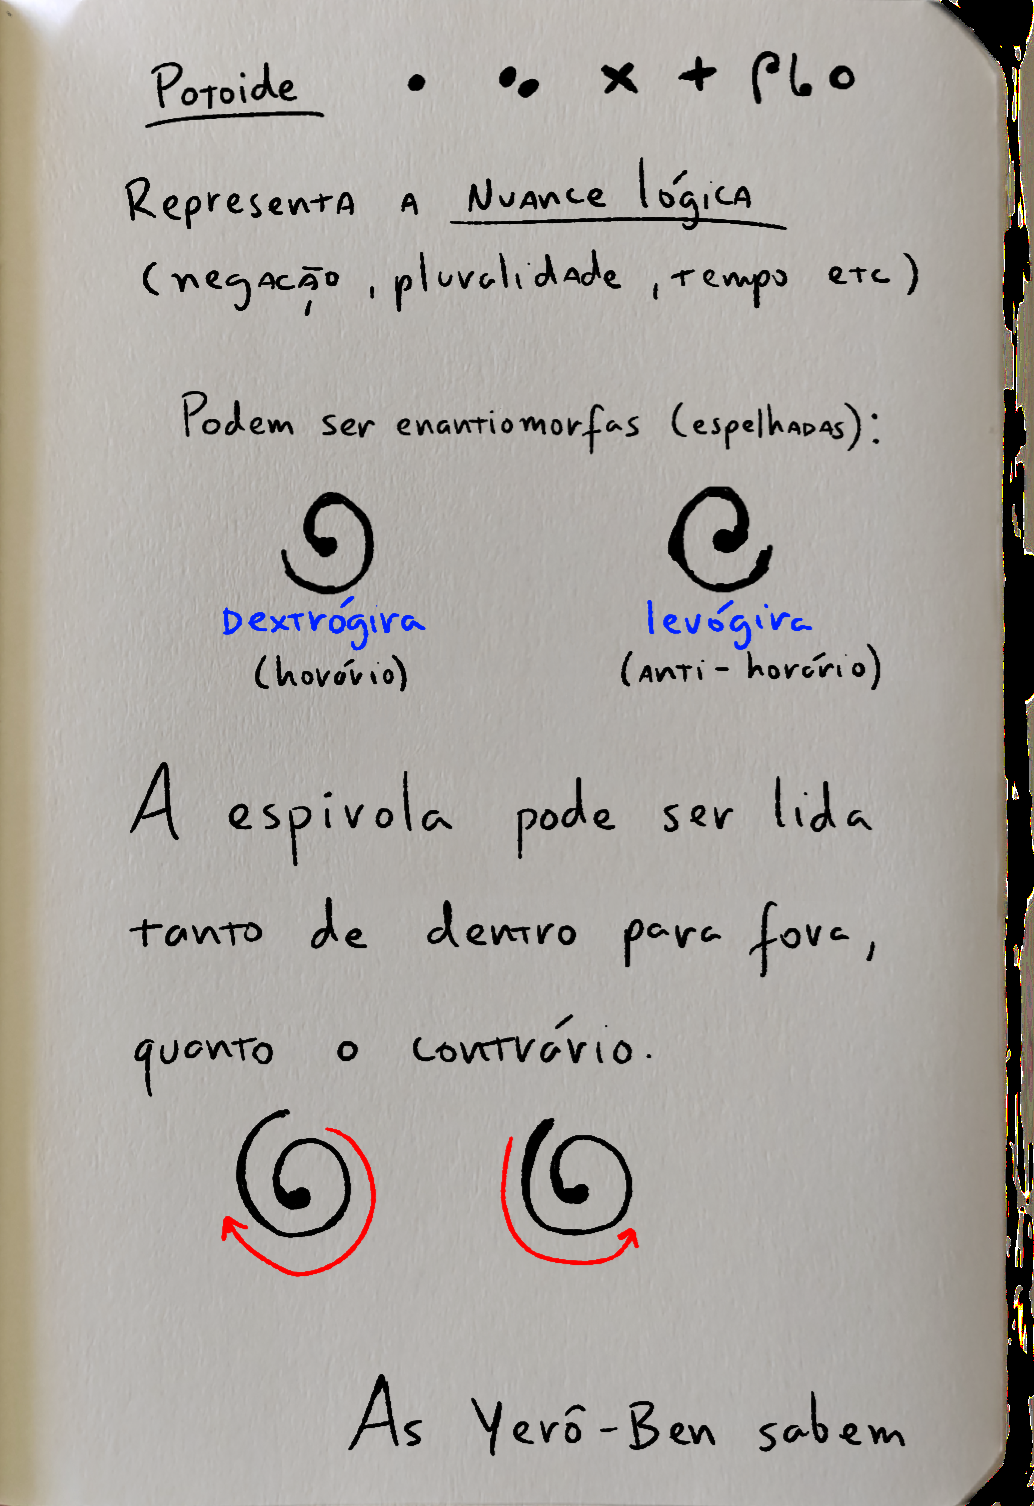 Potoide
Representa a Nuance lógica
(negação, pluralidade, tempo etc)
Podem ser enantiomorfas (espelhadas):
Dextrógira levógira
(horário) (anti-horário)
A espirola pode ser lida
tanto de dentro para fora,
quanto o contrário.
As Yerô-Ben sabem